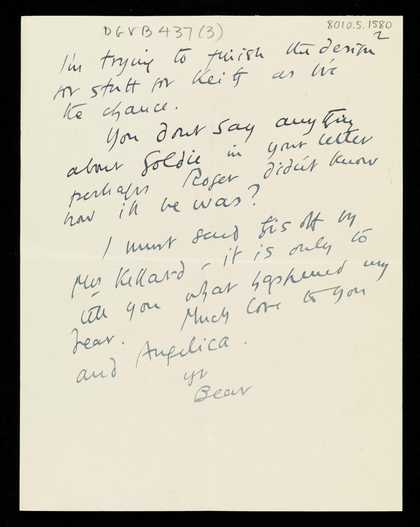 DGVB 437(3)
8010.5.1580
2
I'm trying to finish the design
for stuff for Keith as I've
the chance.
You don't say anything
about Goldie in your letter
perhaps Roger didn't know
how ill he was?
I must send this off by
Mrs - it is only to
tell you what happened my
dear. Much love to you
and Angelica.
yr
Bear